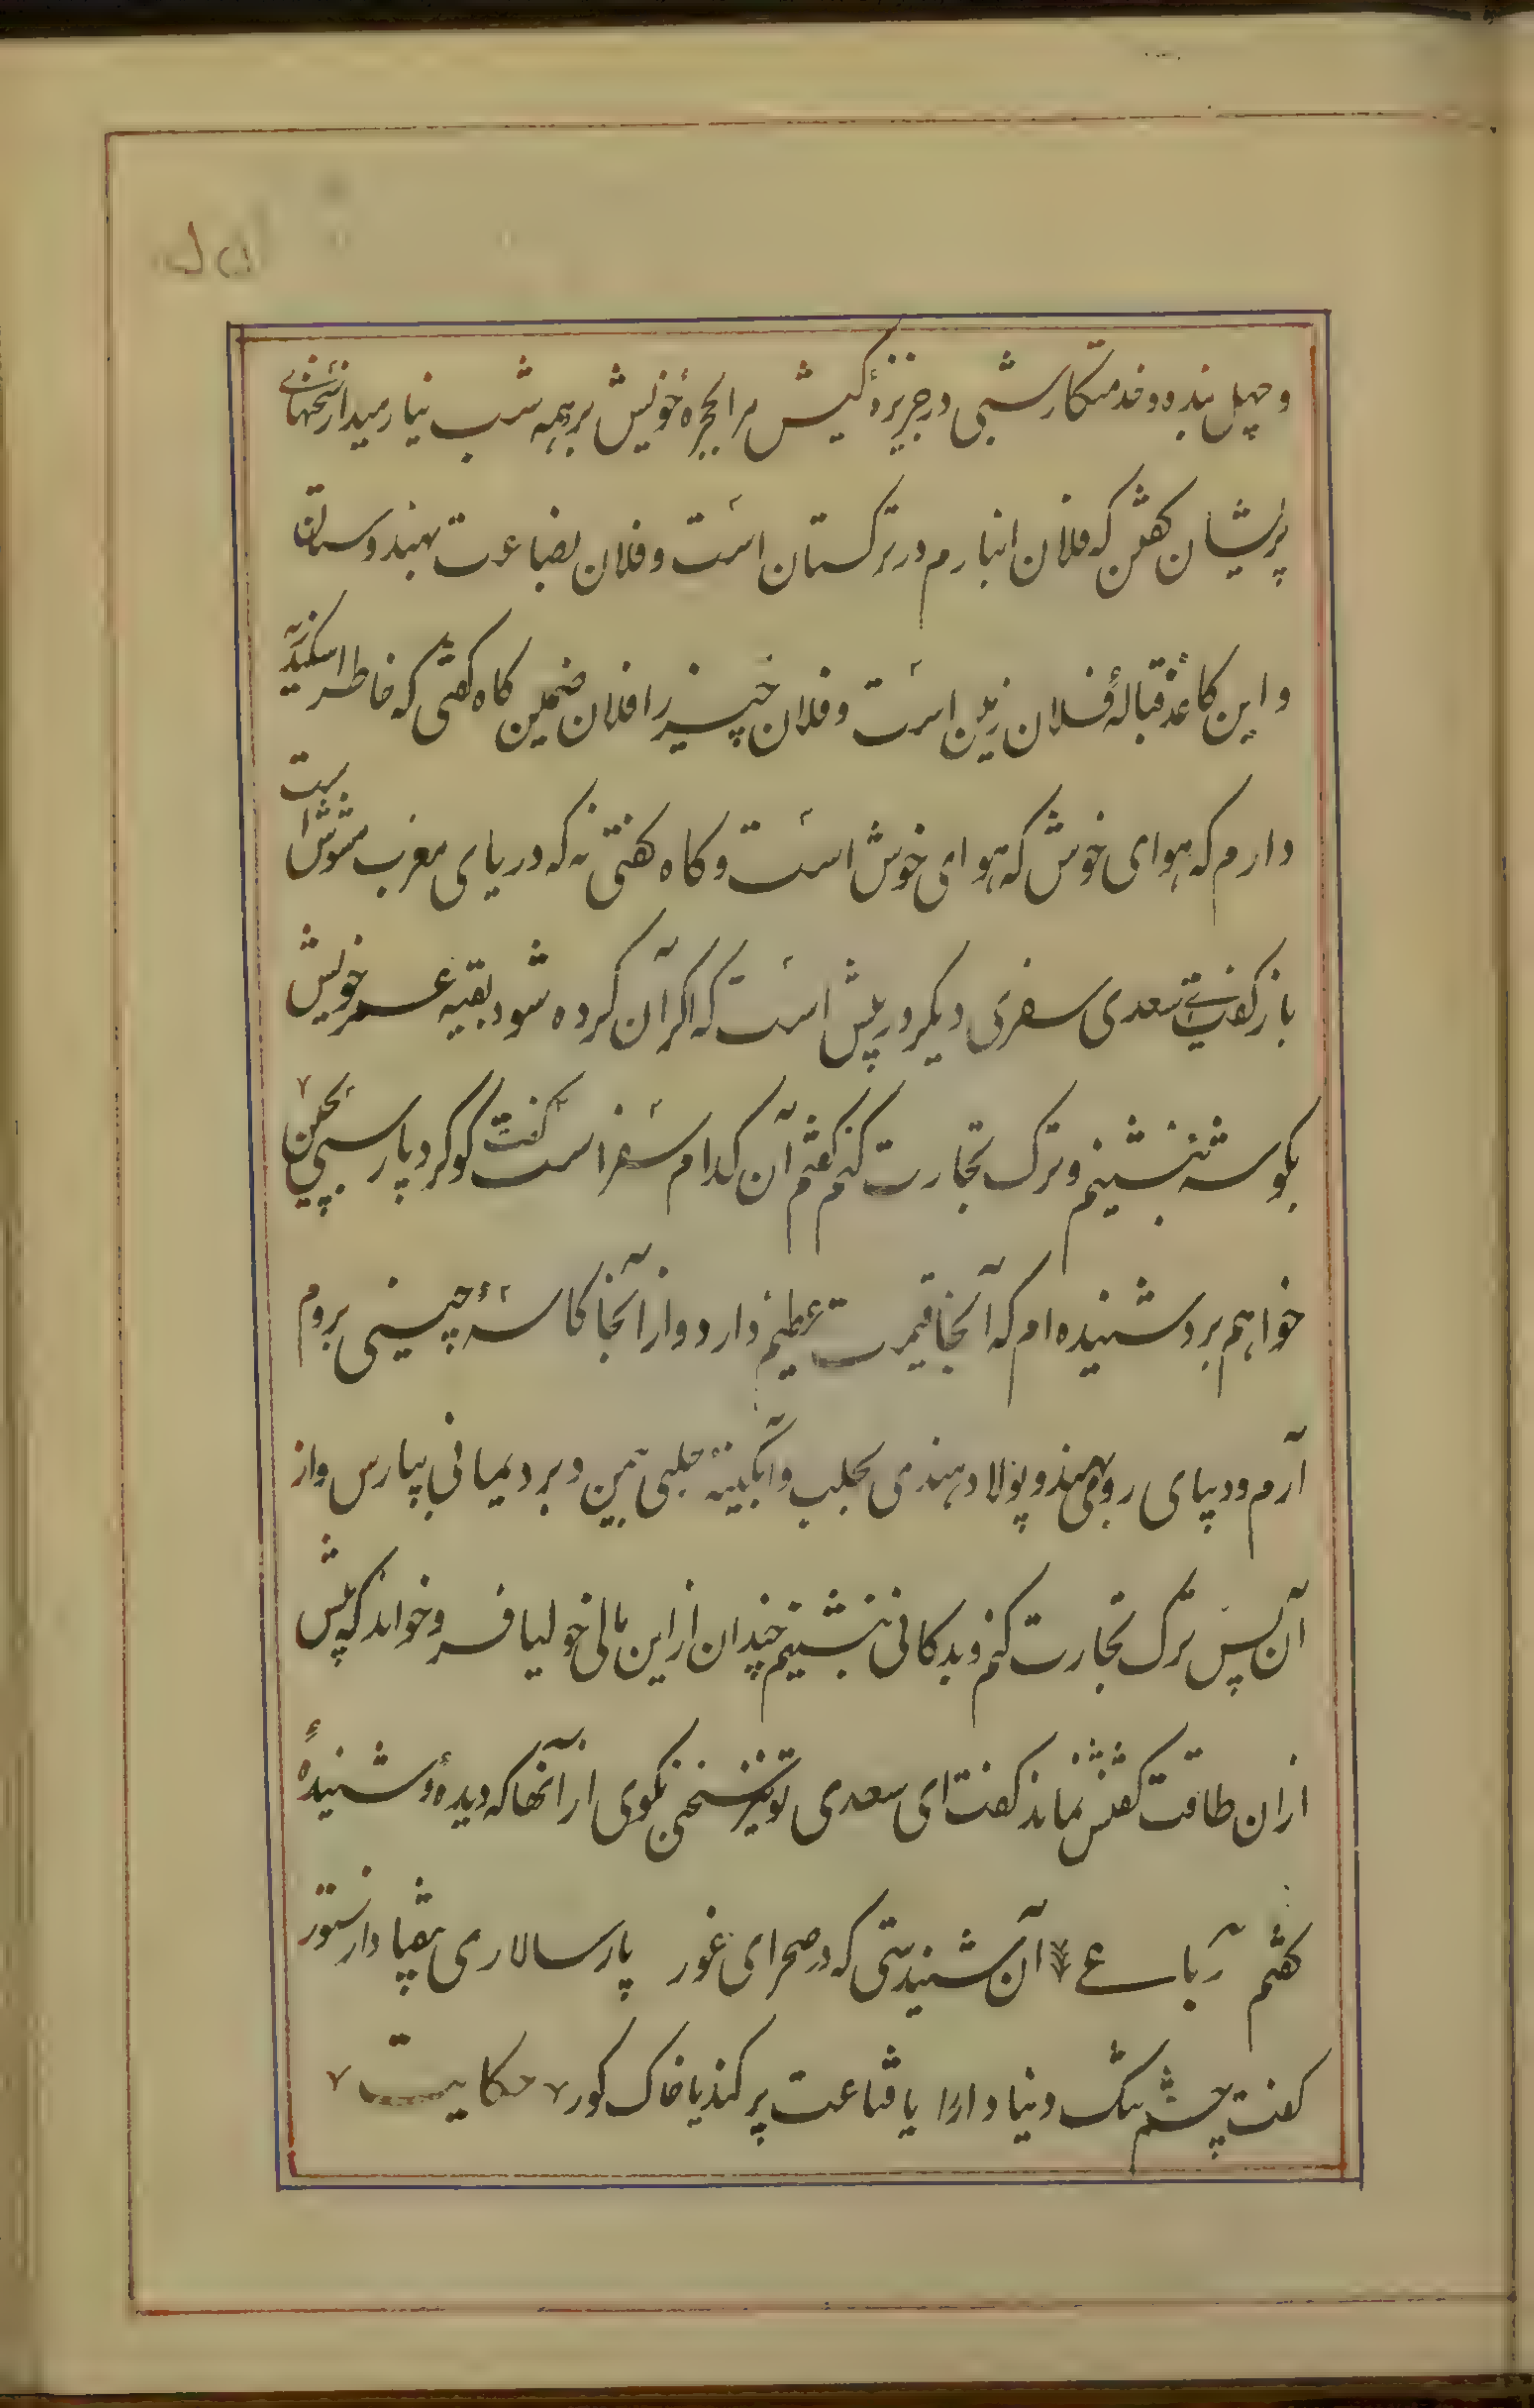 و چهل بنده و خدمتکار شبی در جزیرهٔ کیش مرا بحجرهٔ خویش برد همه شب نیارمید از سخنهائی
پریشان گفتن که فلان انبارم در ترکستان است و فلان بضاعت بهندوستان
و این کاغذ قبالهٔ فلان زمین است و فلان چیز را فلان ضمین گاه گفتی که خاطر اسکندریه
دارم که هوای خوش که هوای خوش است و گاه گفتی نه که دریای مغرب مشوش است
باز گفت سعدی سفری دیگر در پیش است که اگر آن کرده شود بقیه عمر خویش
بگوشه بنشینم و ترک تجارت کنم گفتم آن کدام سفر است گفت گوگرد پارسی بچین
خواهم برد شنیده ام که آنجا قیمت عظیم دارد و از آنجا کاسهٔ چینی بروم
آرم و دیبای رومی بهند و پولاد هندی بحلب و آبگینهٔ حلبی بیمن و برد یمانی بپارس و از
آن پس ترک تجارت کنم و بدکانی بنشینم چندان از این مالی خولیا فرو خواند که پیش
ازان طاقت گفتنش نماند گفت ای سعدی تو نیز سخنی بگوی از آنها که دیدهٔ و شنیدهٔ
گفتم رباعی آن شنیدستی که در صحرای غور پار سالاری بیفتاد از ستور
گفت چشم تنگ دنیا دار را یا قناعت پر کند یا خاک گور حکایت